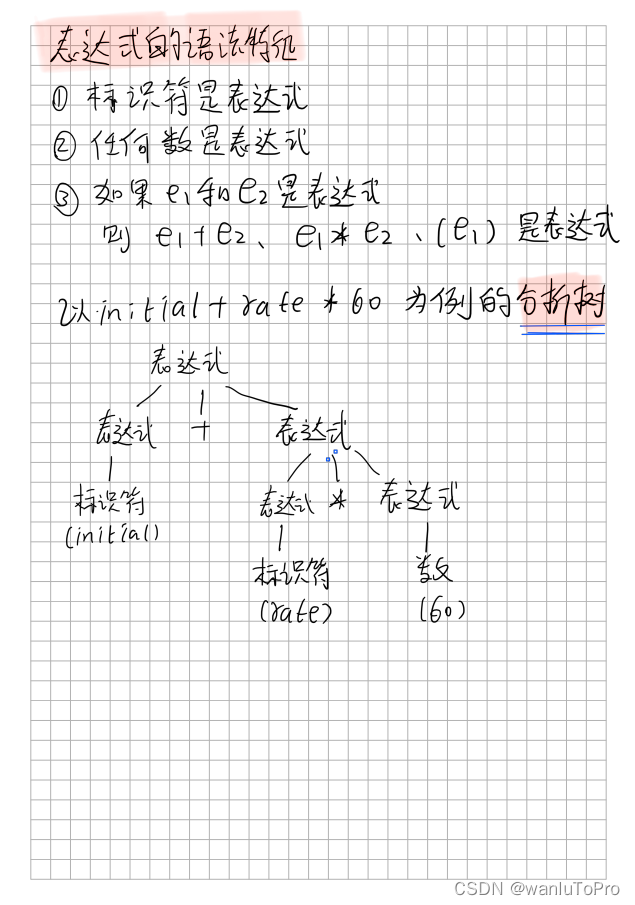 表达式的语法特征
① 标识符是表达式
② 任何数是表达式
③ 如果 e1和e2是表达式
则 e1+e2、e1*e2、(e1) 是表达式
以initial+rate*60 为例的分析树
表达式
表达式 + 表达式
标识符 表达式 * 表达式
(initial)
标识符 数
(rate) (60)
CSDN @wanluToPro